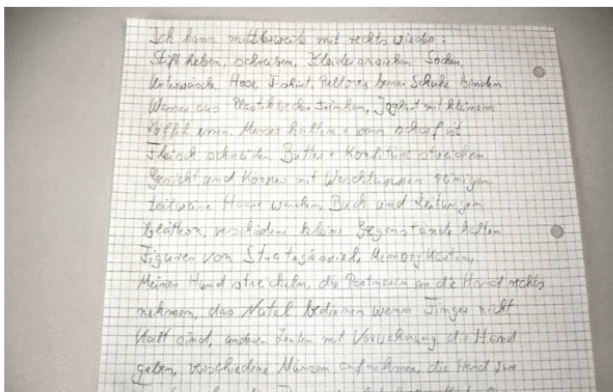 Ich kann mittlerweile mit rechts wieder:
Stift heben, schreiben, Kleider anziehen Socken,
Unterwäsche, Hose, T-Shirt, Pullover, Schuhe binden
Wasser aus Plastikbecher trinken, Joghurt mit kleinem
Löffel essen. Messer halten + wenn scharf ist
Fleisch schneiden Butter + Konfitüre streichen
Gesicht und Körper mit Waschlappen reinigen
zeitweise Haare waschen, Buch und Zeitungen
blättern, verschiedene kleine Gegenstände halten
Figuren von Strategiespiel, Memory Karten,
Meinen Hund streicheln, die Partnerin an die Hand rechts
nehmen, das Natel bedienen wenn Finger nicht
kalt sind, anderen Leuten mit Vorwarnung die Hand
geben, verschiedene Münzen aufnehmen, die Hand zur